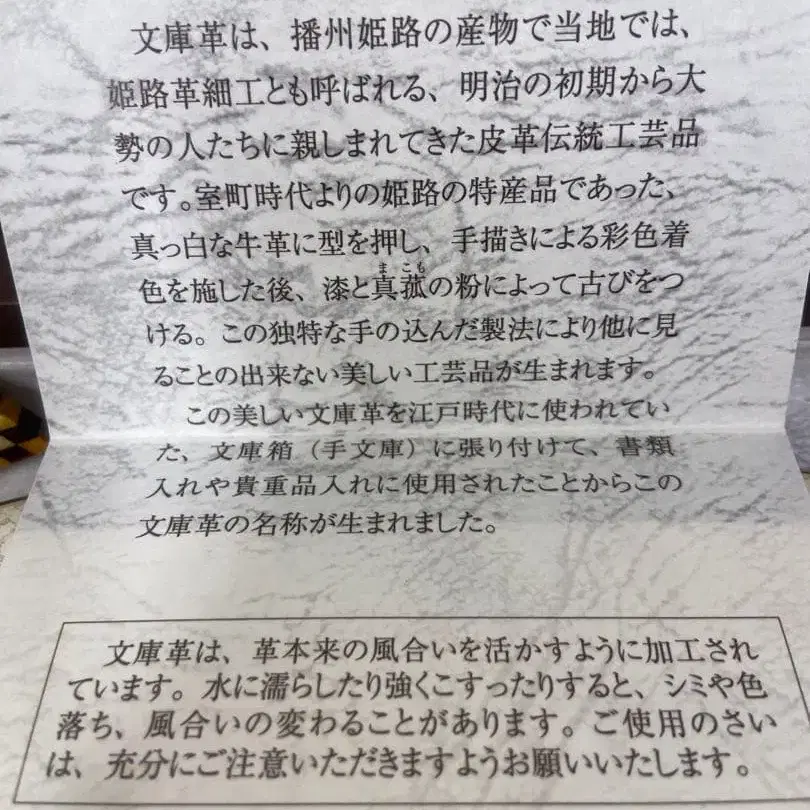 文庫革は、播州姫路の産物で当地では、
姫路革細工とも呼ばれる、明治の初期から大
勢の人たちに親しまれてきた皮革伝統工芸品
です。室町時代よりの姫路の特産品であった、
真っ白な牛革に型を押し、手描きによる彩色着
まこも
色を施した後、漆と真菰の粉によって古びをつ
ける。この独特な手の込んだ製法により他に見
ることの出来ない美しい工芸品が生まれます。
この美しい文庫革を江戸時代に使われてい
た、文庫箱（手文庫）に張り付けて、書類
入れや貴重品入れに使用されたことからこの
文庫革の名称が生まれました。
文庫革は、革本来の風合いを活かすように加工され
ています。水に濡らしたり強くこすったりすると、シミや色
落ち、風合いの変わることがあります。ご使用のさい
は、充分にご注意いただきますようお願いいたします。